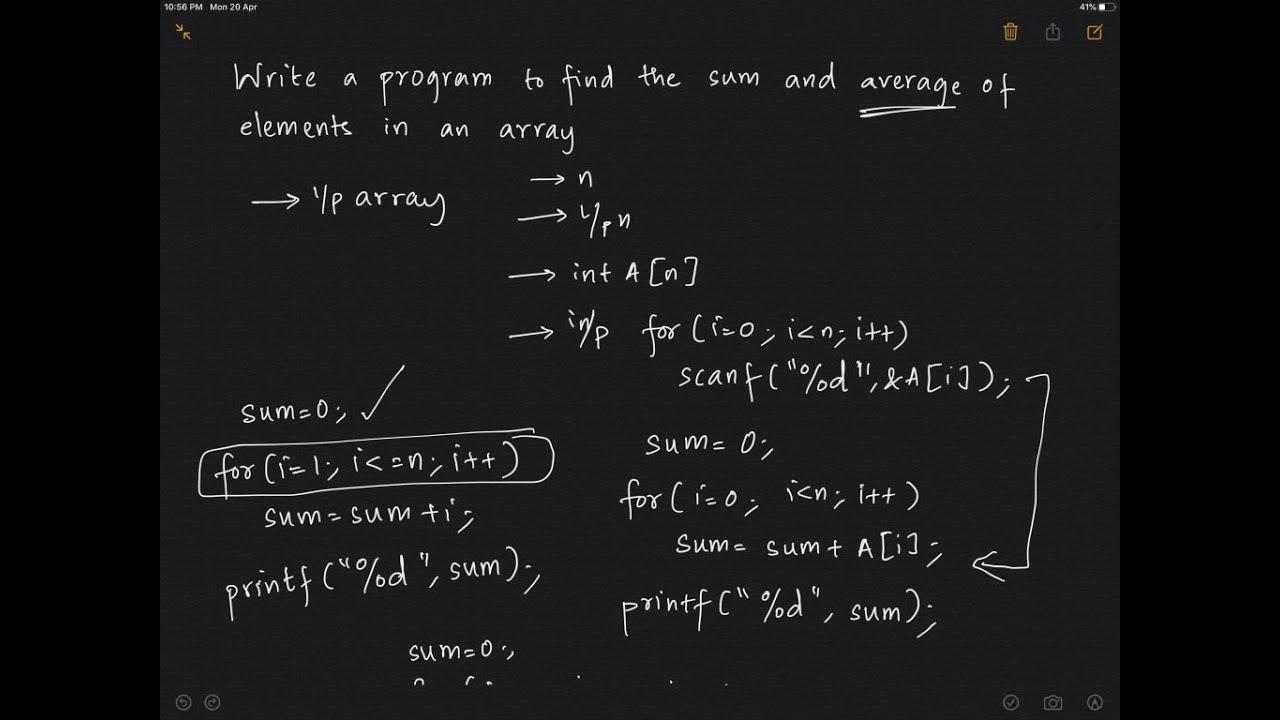 10:56 PM Mon 20 Apr
41%
Write a program to find the sum and average of
elements in an array
→ i/p array
→ n
→ i/p n
→ int A[n]
→ in/p for(i=0; i<n; i++)
scanf("%d", &A[i]);
sum=0; ✓
for(i=1; i<=n; i++)
sum=sum+i;
printf("%d", sum);
sum=0;
for(i=0; i<n; i++)
sum= sum+ A[i];
printf("%d", sum);
sum=0;